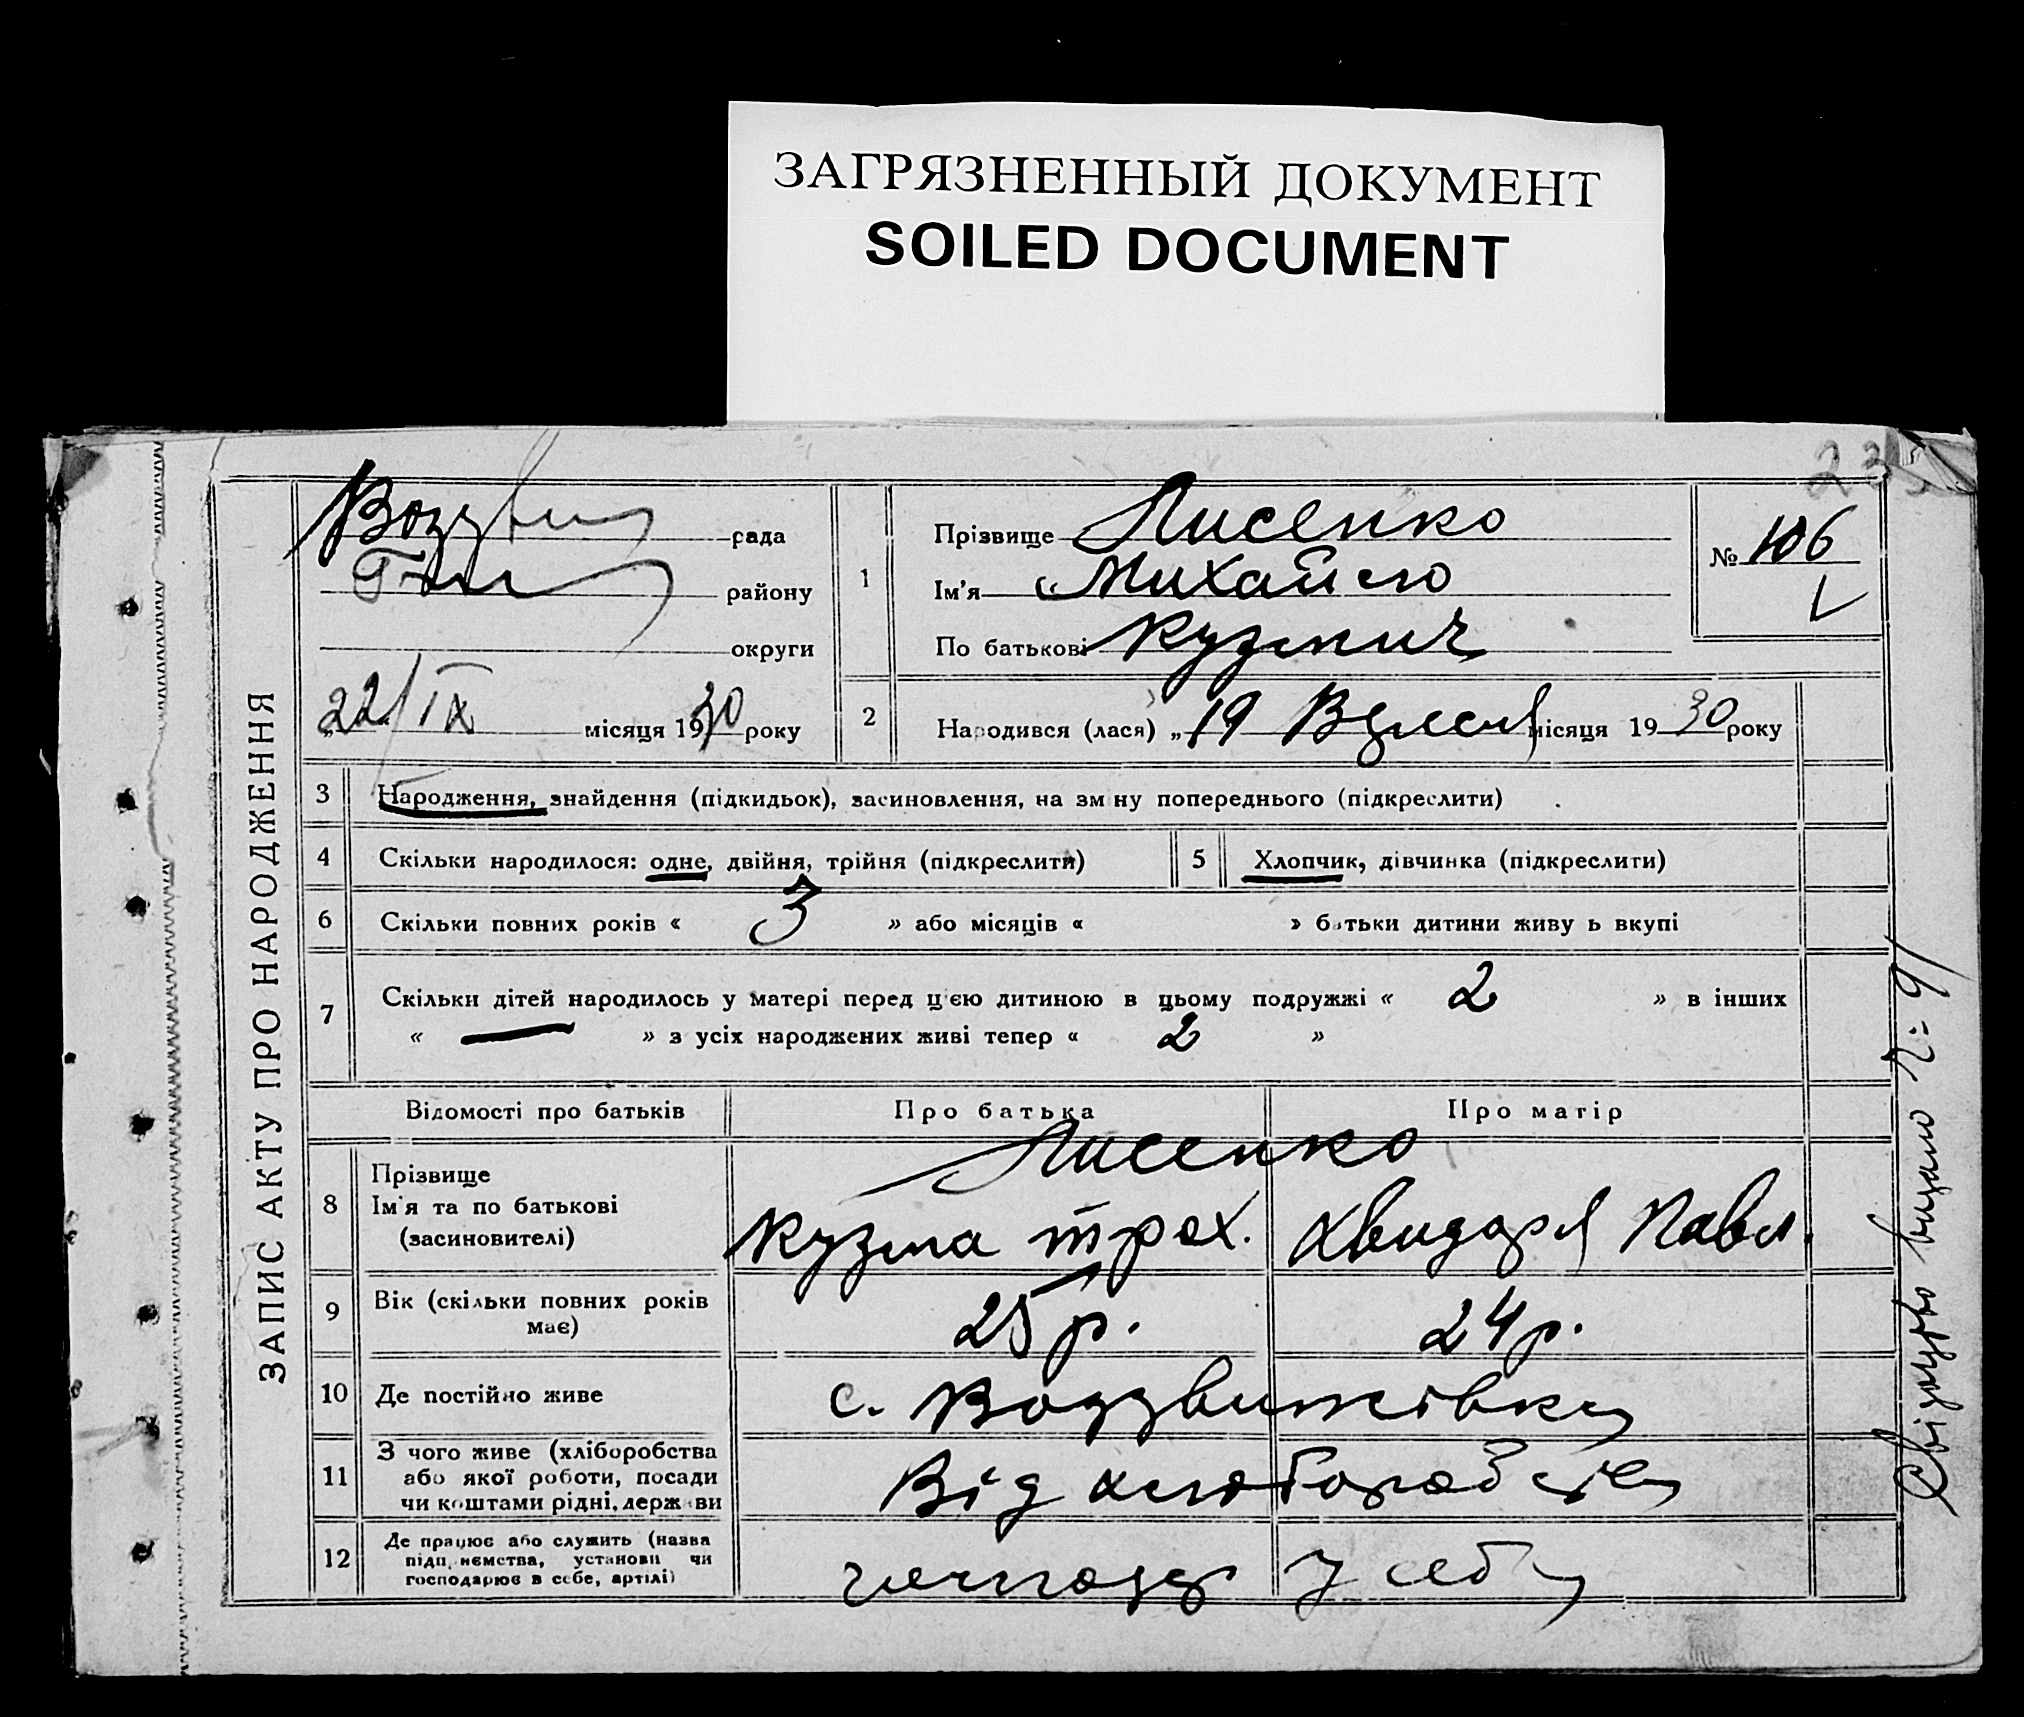 ЗАГРЯЗНЕННЫЙ ДОКУМЕНТ
SOILED DOCUMENT
23
ЗАПИС АКТУ ПРО НАРОДЖЕННЯ
Воздвиж рада
району
округи
„22/IX місяця 1930 року
1 Прізвище Лисенко
Ім'я Михайло
По батькові Кузмич
№ 106
2 Народився (лася) „19 Вересня місяця 1930 року
3 Народження, знайдення (підкидьок), засиновлення, на зм ну попереднього (підкреслити)
4 Скільки народилося: одне, двійня, трійня (підкреслити) 5 Хлопчик, дівчинка (підкреслити)
6 Скільки повних років « 3 » або місяців « » батьки дитини живу ь вкупі
7 Скільки дітей народилось у матері перед цією дитиною в цьому подружжі « 2 » в інших
« — » з усіх народжених живі тепер « 2 »
Відомості про батьків Про батька Про матір
8 Прізвище
Ім'я та по батькові
(засиновителі)
Лисенко
Кузма Трох. Хвидоря Павл.
9 Вік (скільки повних років
має)
25 р. 24 р.
10 Де постійно живе с. Воздвижівка
11 З чого живе (хліборобства
або якої роботи, посади
чи коштами рідні, держави
Від хлоборобства
12 Де працює або служить (назва
підп. иємства, установи чи
господарює в себе, артілі)
господар у себе
Свідоцтво видано n=91